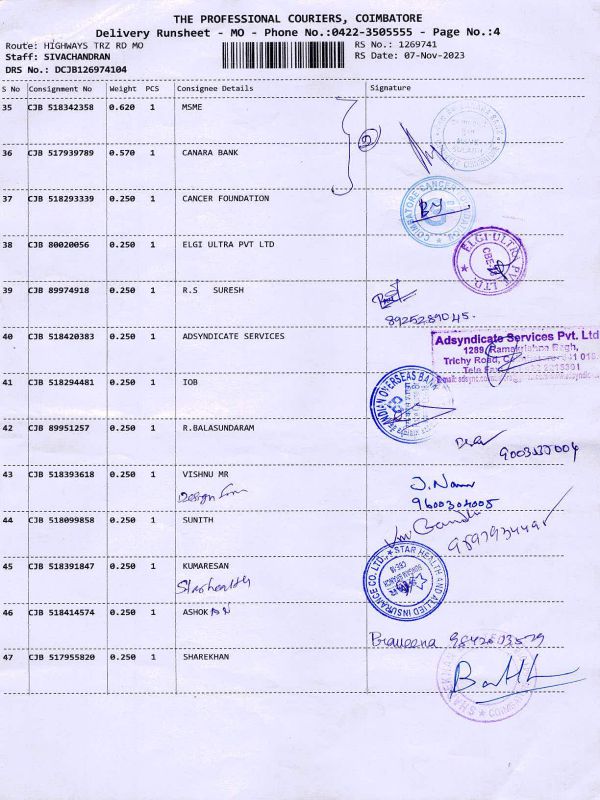 THE PROFESSIONAL COURIERS, COIMBATORE
Delivery Runsheet - MO - Phone No.:0422-3505555 - Page No.:4
Route: HIGHWAYS TRZ RD MO
RS No.: 1269741
Staff: SIVACHANDRAN
RS Date: 07-Nov-2023
DRS No.: DCJB126974104
S No Consignment No Weight PCS Consignee Details Signature
35 CJB 518342358 0.620 1 MSME
36 CJB 517939789 0.570 1 CANARA BANK
37 CJB 518293339 0.250 1 CANCER FOUNDATION
38 CJB 80020056 0.250 1 ELGI ULTRA PVT LTD
ELGI ULTRA PVT. LTD.
CBE
39 CJB 89974918 0.250 1 R.S SURESH
8925289045.
40 CJB 518420383 0.250 1 ADSYNDICATE SERVICES
Adsyndicate Services Pvt. Ltd
1289, Ramakrishna
Trichy Road,
41 CJB 518294481 0.250 1 IOB
INDIAN OVERSEAS BANK
42 CJB 89951257 0.250 1 R.BALASUNDARAM
43 CJB 518393618 0.250 1 VISHNU MR
Design
9600304005
44 CJB 518099858 0.250 1 SUNITH
45 CJB 518391847 0.250 1 KUMARESAN
Starhealth
STAR HEALTH AND ALLIED INSURANCE CO. LTD.,
46 CJB 518414574 0.250 1 ASHOK
Praveena 9842603529
47 CJB 517955820 0.250 1 SHAREKHAN